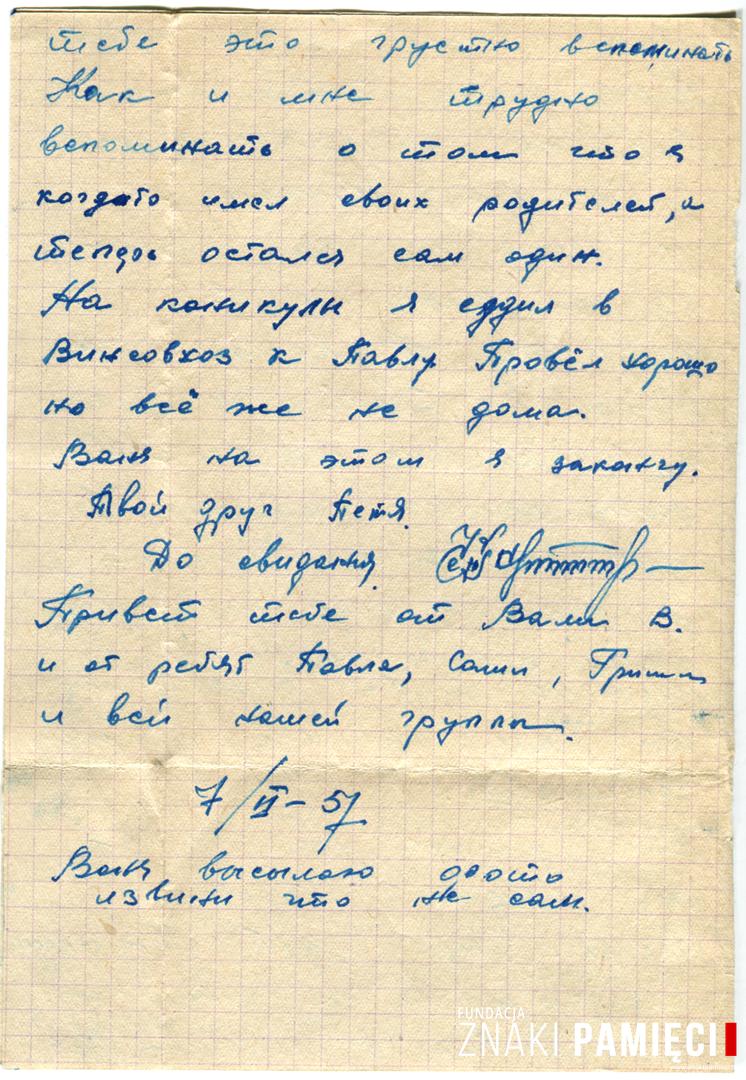 тебе это грустно вспоминать
Как и мне трудно
вспоминать о том что я
когдато имел своих родителей, а
теперь остался сам один.
На каникулы я ездил в
Винсовхоз к Павлу Провёл хорошо
но всё же не дома.
Ваня на этом я закончу.
Твой друг Петя.
До свидания
Привет тебе от Вали В.
и от ребят Павла, Саши, Гриши
и всей нашей группы.
7/II-57
Ваня высылаю фото
извини что не сам.
FUNDACJA
ZNAKI PAMIĘCI